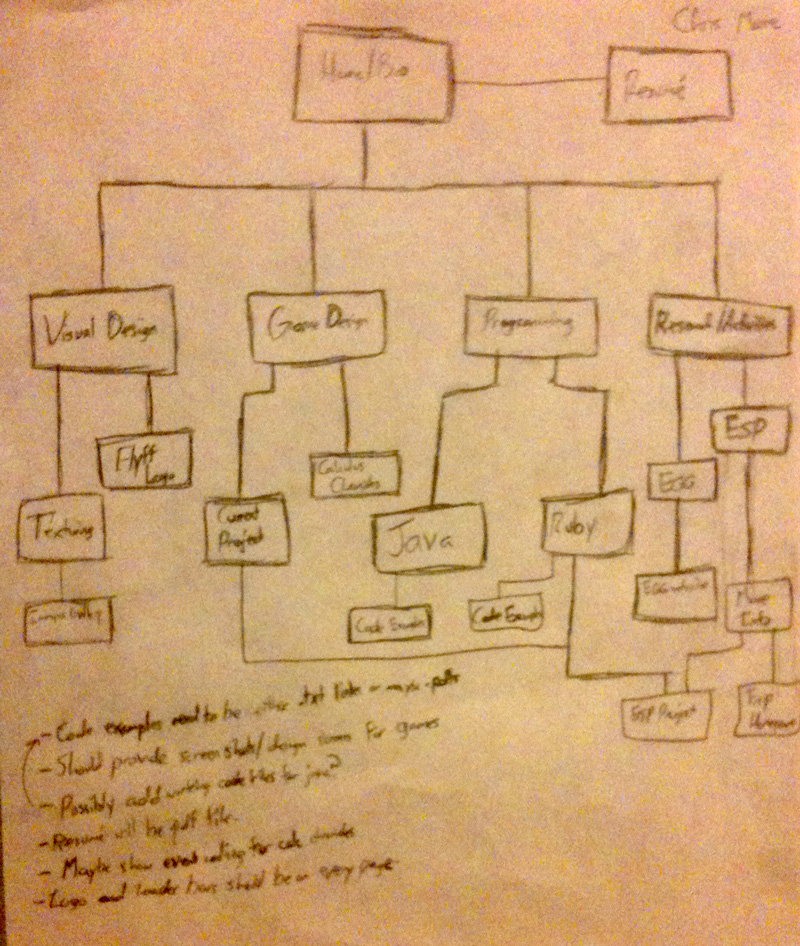 Chris
Home/Bio
Resumé
Visual Design
Game Design
Programming
Research/Activities
Flyff
Logo
Calculus
Chronicles
ESP
EGG
Texturing
Current
Project
Java
Ruby
EGG website
More
Info
Code Example
Code Example
ESP Project
ESP
- Code examples need to be either .txt links or maybe .pdfs
- Should provide screenshots/design for games
- Possibly add working code files for java?
- Resumé will be pdf file.
- Maybe show event for calc chronicles
- Logo and header bars should be on every page.